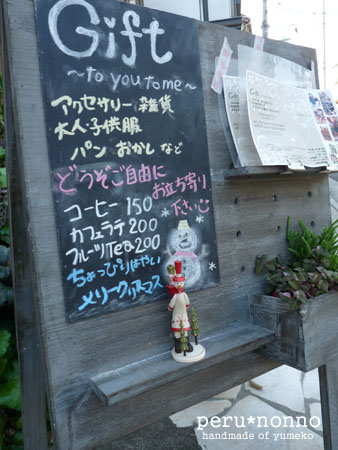 Gift
~to you to me~
アクセサリー 雑貨
大人・子供服
パン おかし など
どうぞご自由に
お立ち寄り
下さい
コーヒー 150
カフェラテ 200
フルーツTea 200
ちょっぴりはやい
メリークリスマス
peru*nonno
handmade of yumeko